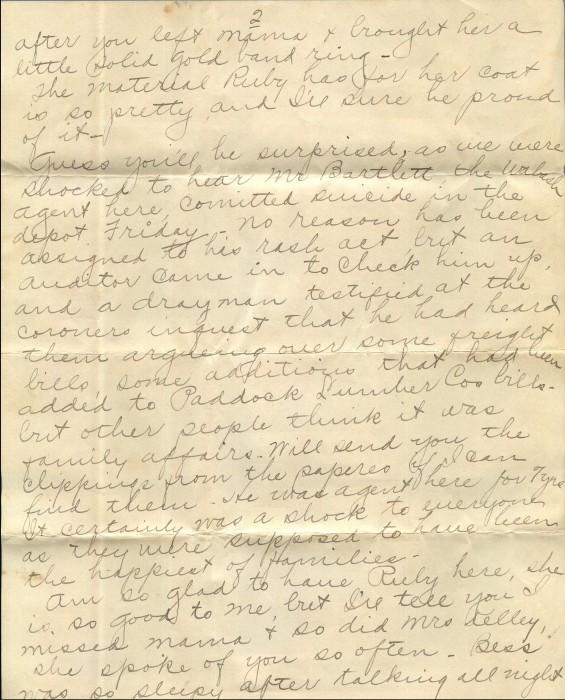 2
after you left mama & brought her a
little solid gold band ring -
The material Ruby has for her coat
is so pretty and I'll sure be proud
of it -
Guess you'll be surprised, as we were
shocked to hear Mr Bartlett the Wabash
agent here, comitted suicide in the
depot Friday. No reason has been
assigned to his rash act but an
auditor came in to check him up,
and a drayman testified at the
coroners inquest that he had heard
them argueing over some freight
bills, some additions that had been
added to Paddock Lumber Cos bills -
but other people think it was
family affairs - Will send you the
clippings from the papers if I can
find them - He was agent here for 7yrs
It certainly was a shock to everyone
as they were supposed to have been
the happiest of families -
Am so glad to have Ruby here, she
is so good to me but I'll tell you I
missed mama & so did Mrs Kelley,
she spoke of you so often - Bess
was so sleepy after talking all night